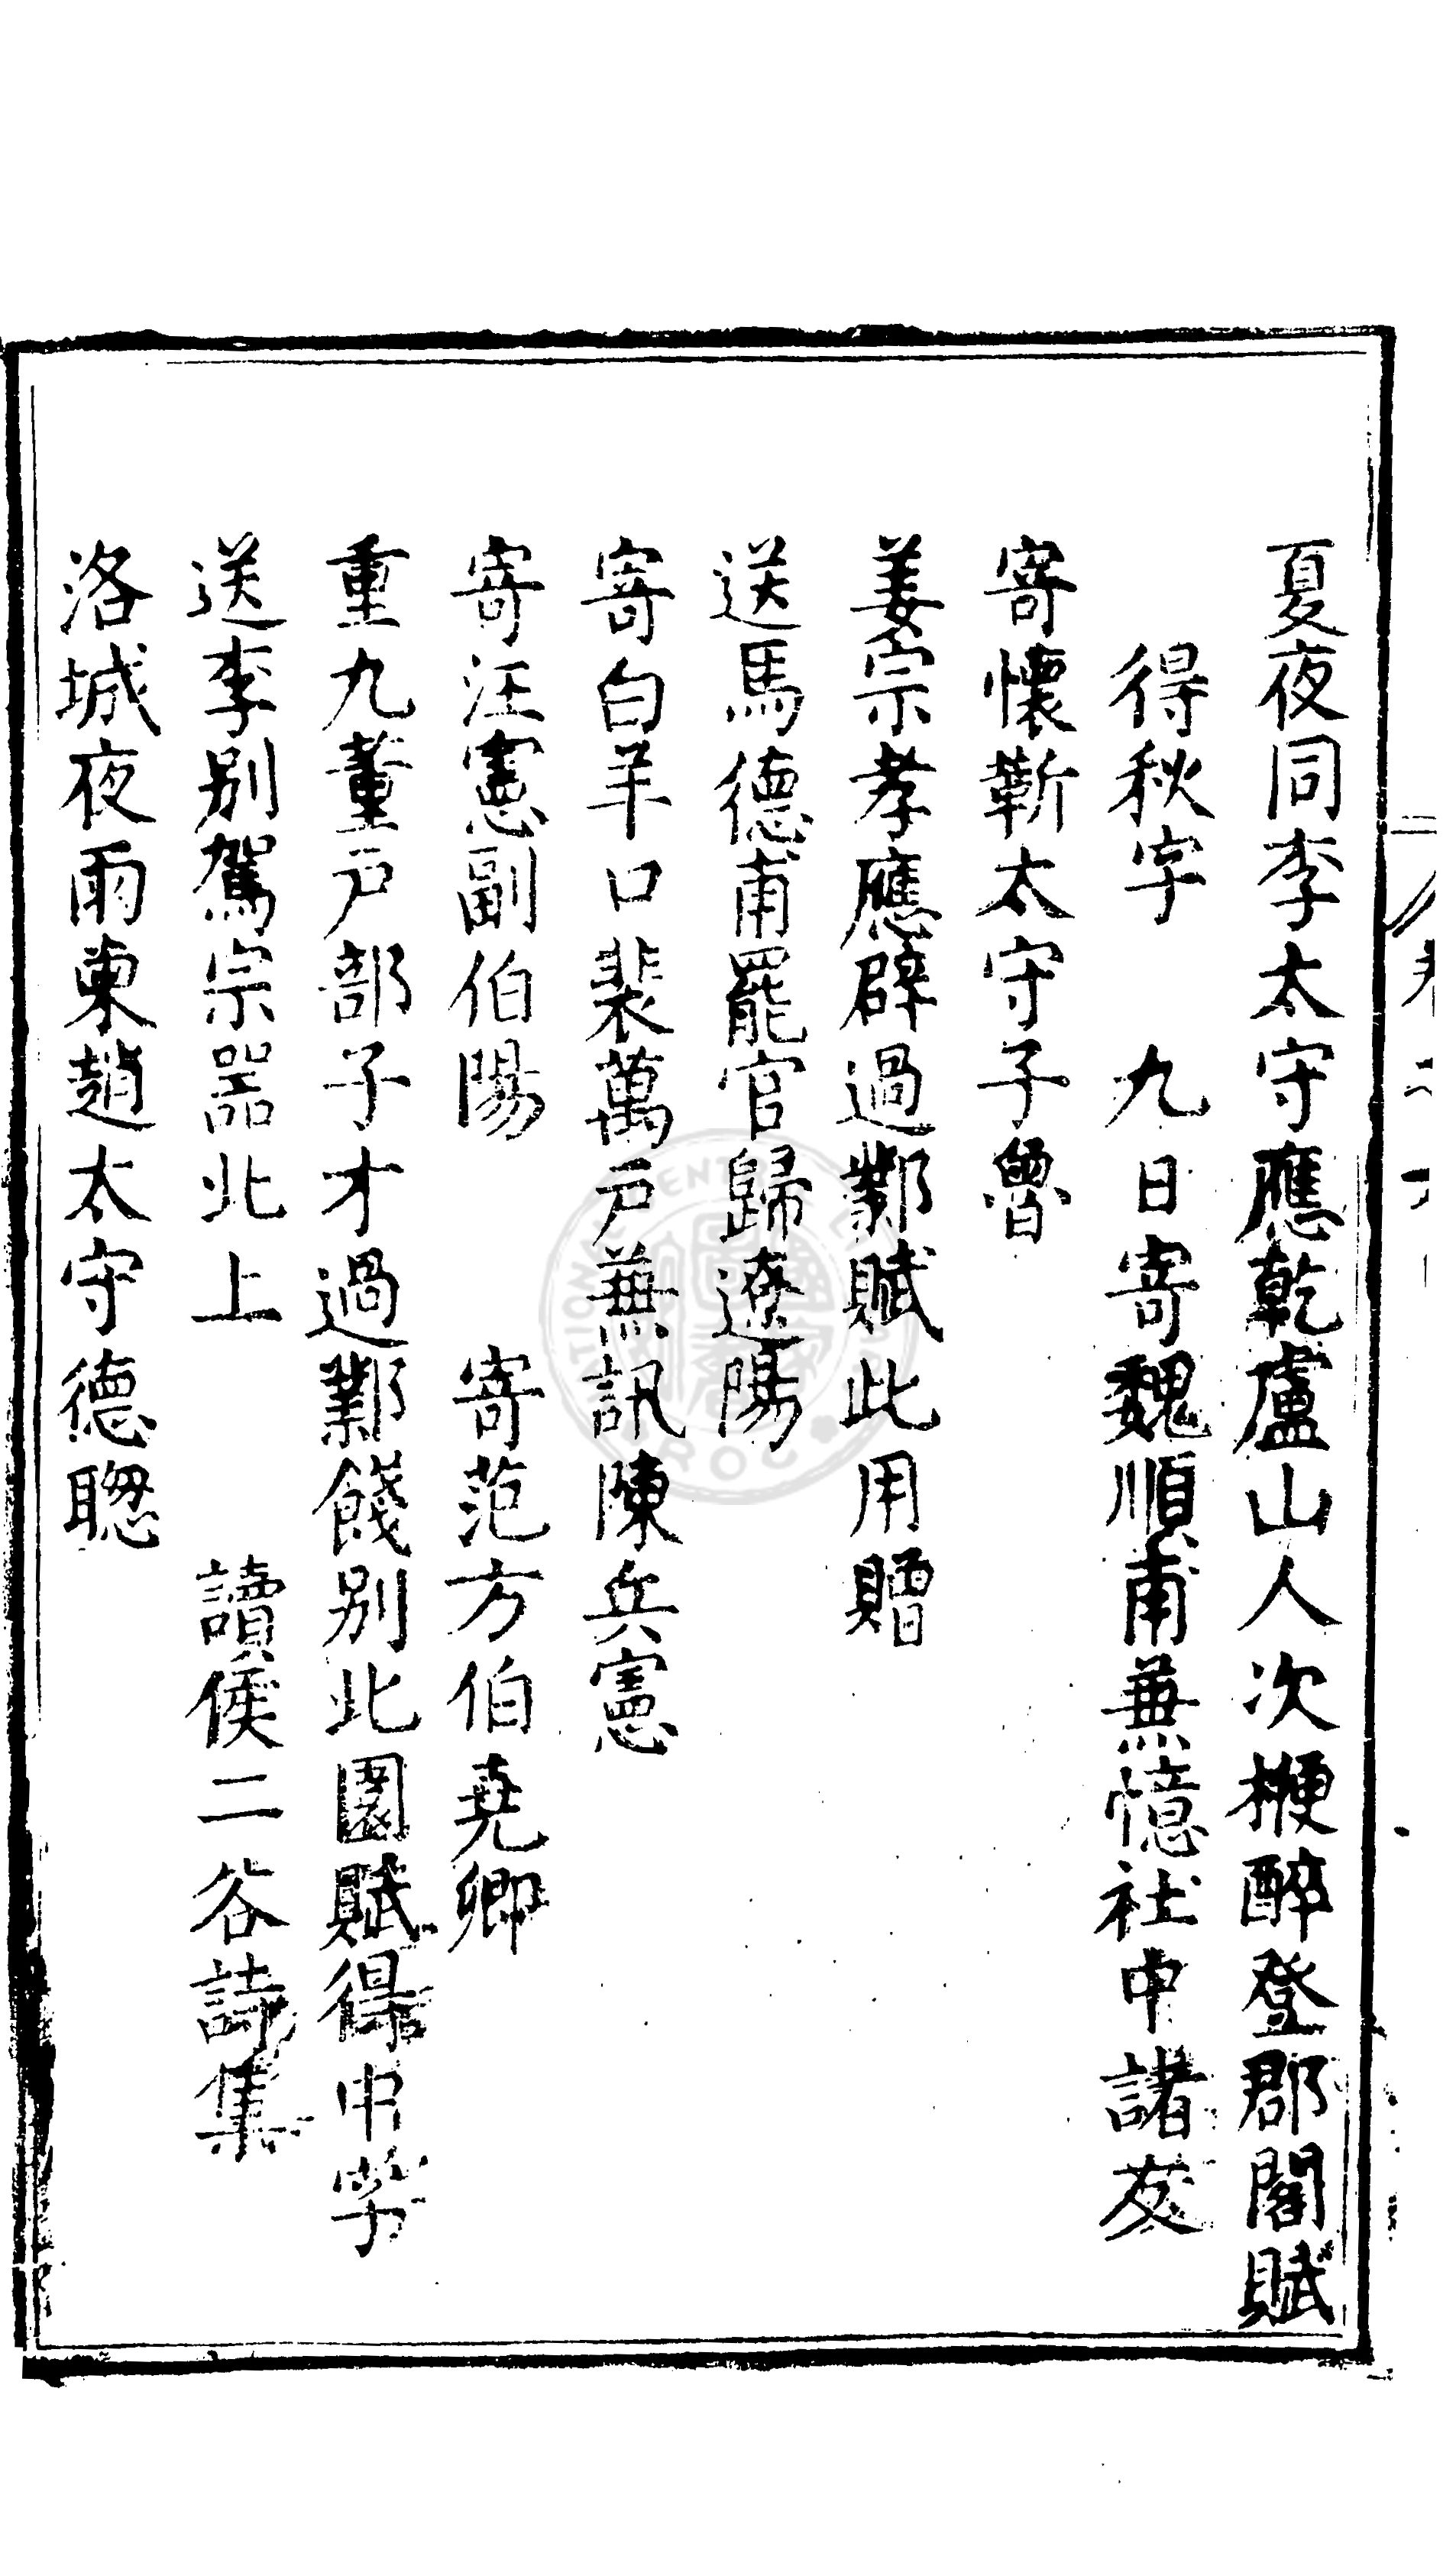 夏夜同李太守應乾盧山人次楩醉登郡閣賦
得秋字　九日寄魏順甫兼憶社中諸友
寄懷靳太守子魯
姜宗孝應辟過鄴賦此用贈
送馬德甫罷官歸遼陽
寄白羊口裴萬戶兼訊陳兵憲
寄汪憲副伯陽　寄范方伯堯卿
重九董戶部子才過鄴餞別北園賦得中字
送李別駕宗器北上　讀侯二谷詩集
洛城夜雨柬趙太守德聰